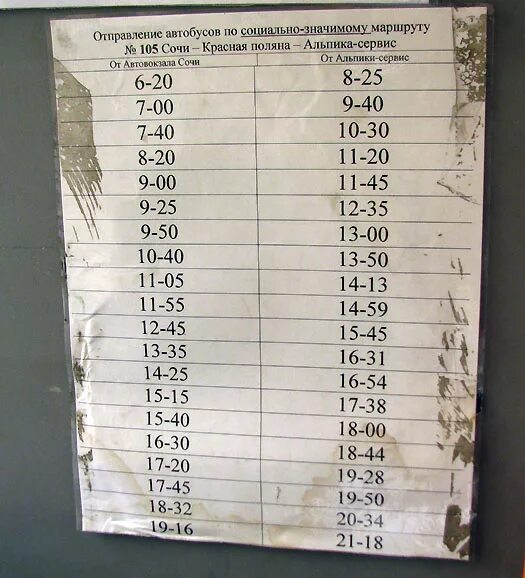 Отправление автобусов по социально-значимому маршруту
№ 105 Сочи – Красная поляна – Альпика-сервис
От Автовокзала Сочи От Альпики-сервис
6-20 8-25
7-00 9-40
7-40 10-30
8-20 11-20
9-00 11-45
9-25 12-35
9-50 13-00
10-40 13-50
11-05 14-13
11-55 14-59
12-45 15-45
13-35 16-31
14-25 16-54
15-15 17-38
15-40 18-00
16-30 18-44
17-20 19-28
17-45 19-50
18-32 20-34
19-16 21-18